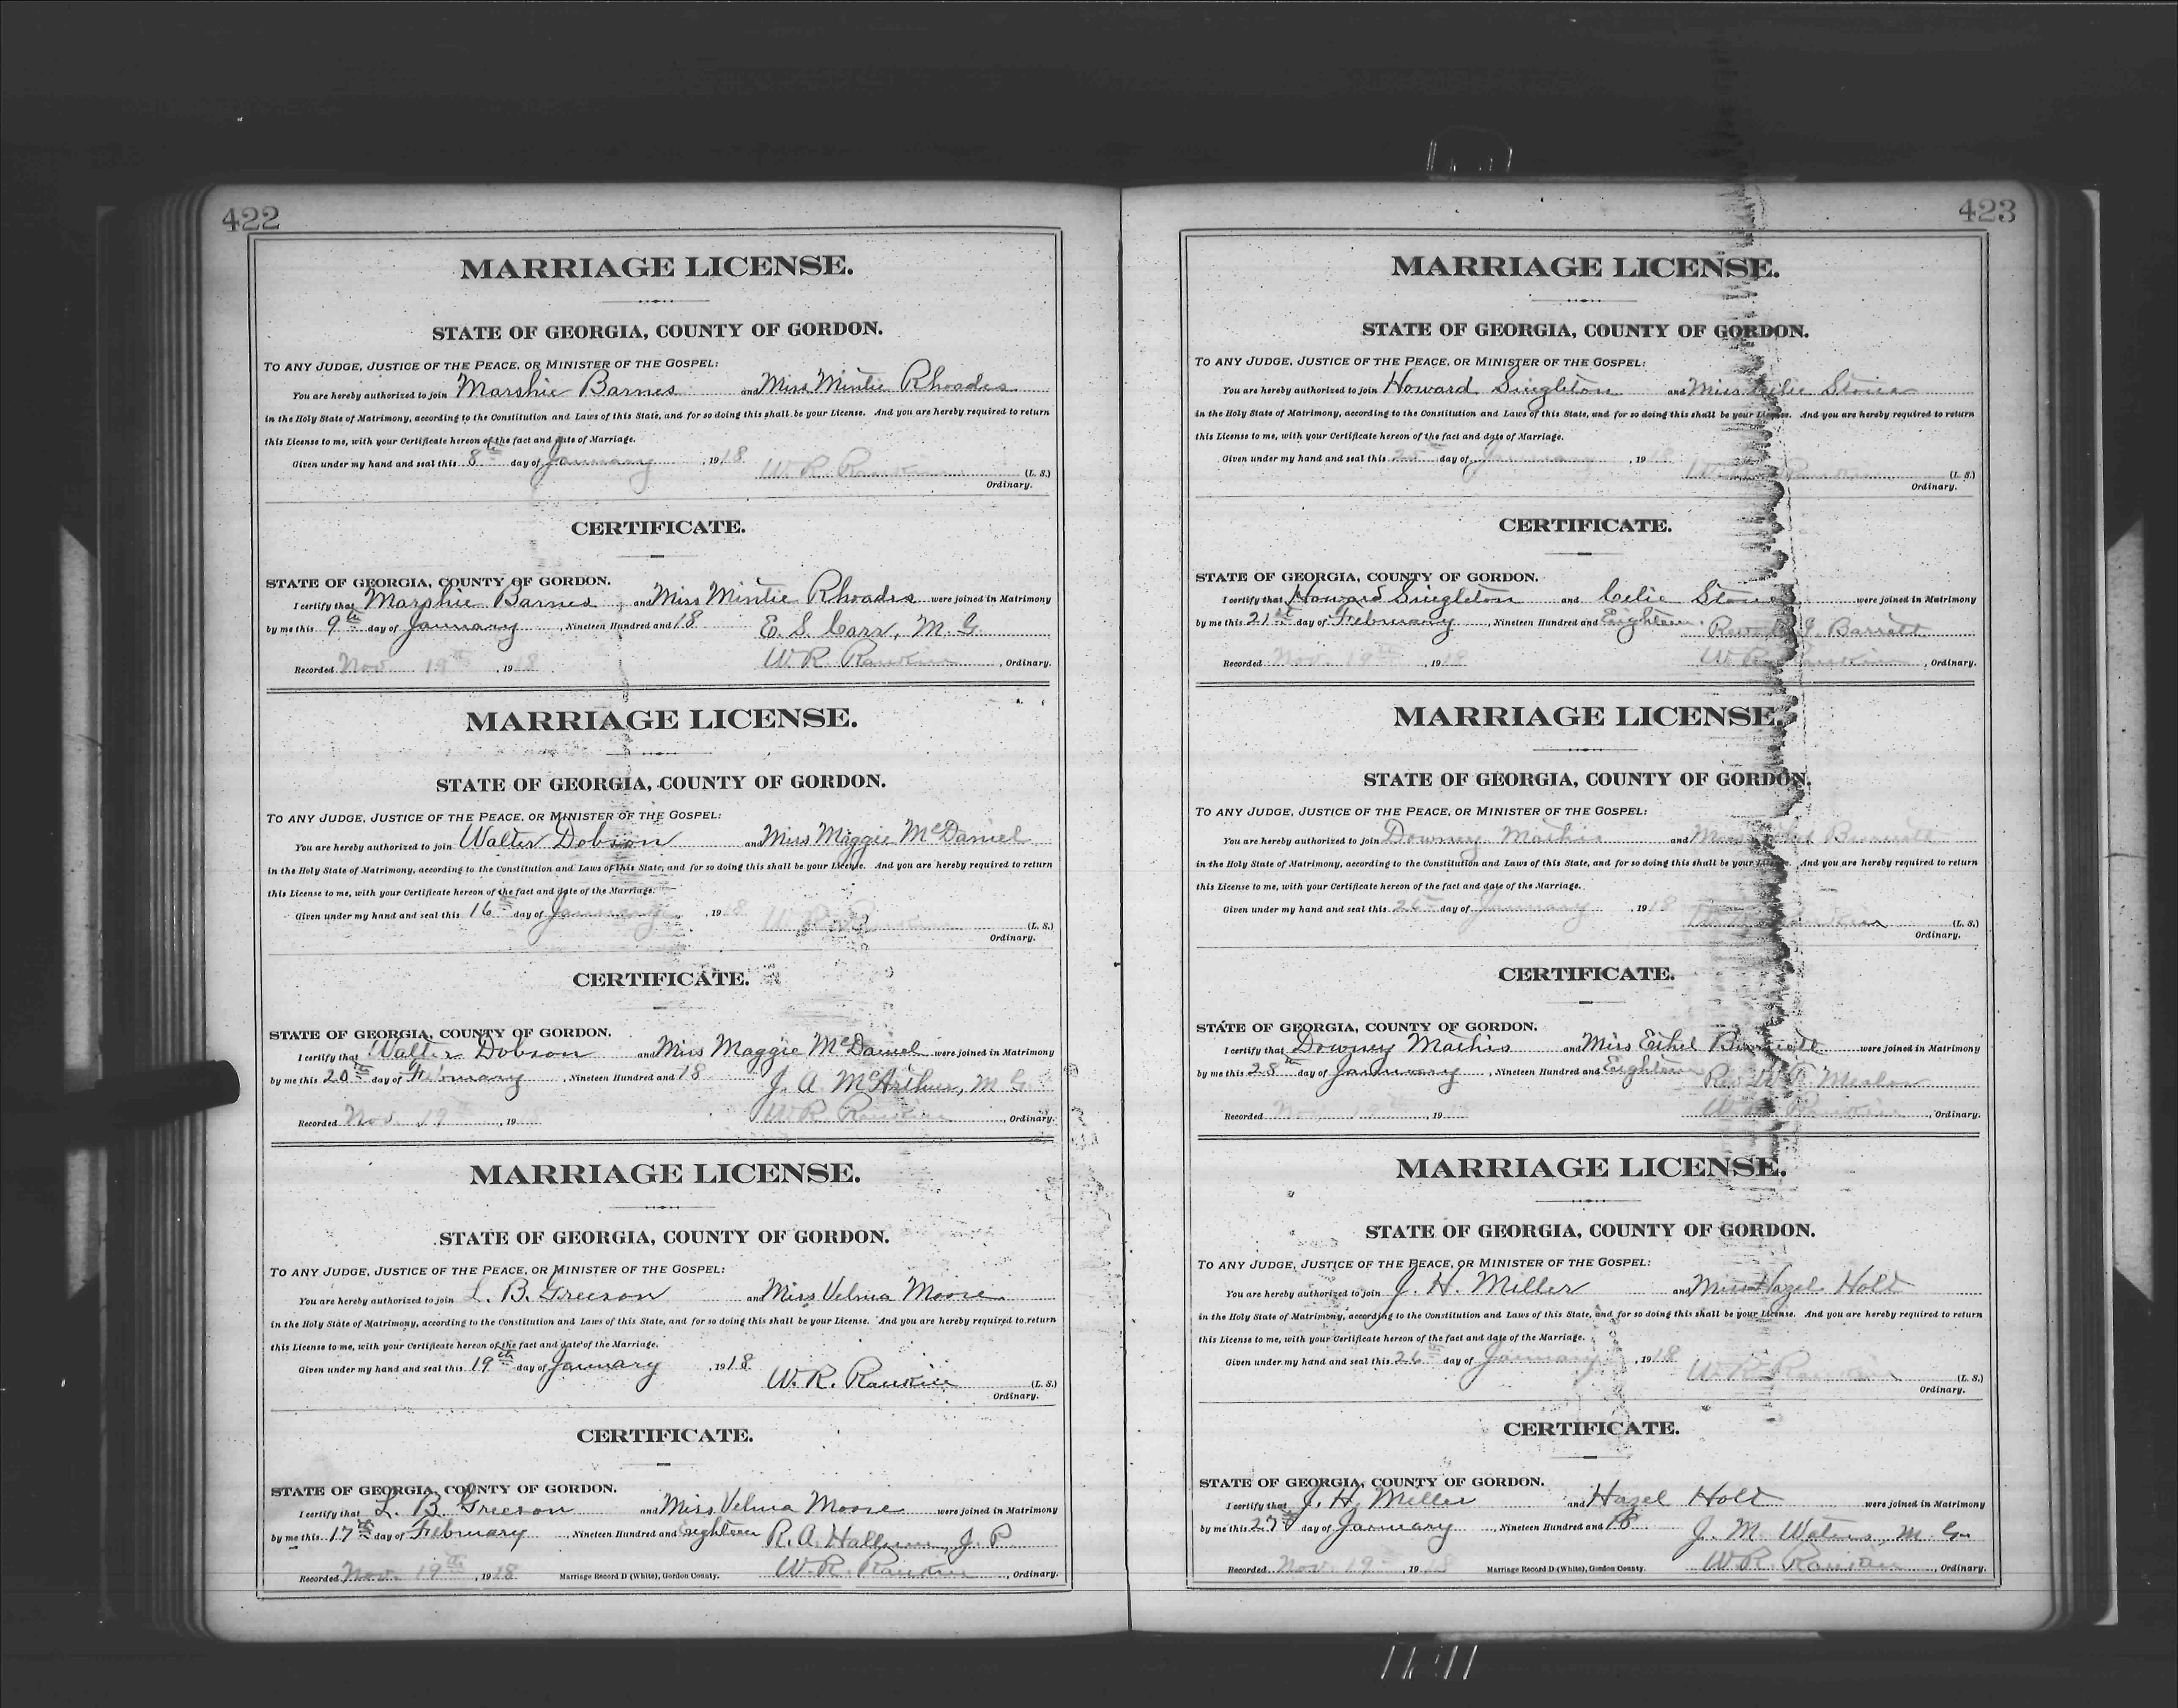 422
MARRIAGE LICENSE.
STATE OF GEORGIA, COUNTY OF GORDON.
TO ANY JUDGE, JUSTICE OF THE PEACE, OR MINISTER OF THE GOSPEL:
You are hereby authorized to join Marshie Barnes and Miss Mintie Rhoades
in the Holy State of Matrimony, according to the Constitution and Laws of this State, and for so doing this shall be your License. And you are hereby required to return
this License to me, with your Certificate hereon of the fact and date of Marriage.
Given under my hand and seal this 8th day of January, 1918 W. R. Rankin (L. S.)
Ordinary.
CERTIFICATE.
STATE OF GEORGIA, COUNTY OF GORDON.
I certify that Marshie Barnes and Miss Mintie Rhoades were joined in Matrimony
by me this 9th day of January, Nineteen Hundred and 18 E. S. Carr, M. G.
Recorded Nov. 19th, 1918 W. R. Rankin, Ordinary.
MARRIAGE LICENSE.
STATE OF GEORGIA, COUNTY OF GORDON.
TO ANY JUDGE, JUSTICE OF THE PEACE, OR MINISTER OF THE GOSPEL:
You are hereby authorized to join Walter Dobson and Miss Maggie McDaniel
in the Holy State of Matrimony, according to the Constitution and Laws of this State, and for so doing this shall be your License. And you are hereby required to return
this License to me, with your Certificate hereon of the fact and date of the Marriage.
Given under my hand and seal this 16th day of January, 1918 W. R. Rankin (L. S.)
Ordinary.
CERTIFICATE.
STATE OF GEORGIA, COUNTY OF GORDON.
I certify that Walter Dobson and Miss Maggie McDaniel were joined in Matrimony
by me this 20th day of February, Nineteen Hundred and 18 J. A. McArthur, M. G.
Recorded Nov. 19th, 1918 W. R. Rankin, Ordinary.
MARRIAGE LICENSE.
STATE OF GEORGIA, COUNTY OF GORDON.
TO ANY JUDGE, JUSTICE OF THE PEACE, OR MINISTER OF THE GOSPEL:
You are hereby authorized to join L. B. Greeson and Miss Velma Moore
in the Holy State of Matrimony, according to the Constitution and Laws of this State, and for so doing this shall be your License. And you are hereby required to return
this License to me, with your Certificate hereon of the fact and date of the Marriage.
Given under my hand and seal this 19th day of January, 1918 W. R. Rankin (L. S.)
Ordinary.
CERTIFICATE.
STATE OF GEORGIA, COUNTY OF GORDON.
I certify that L. B. Greeson and Miss Velma Moore were joined in Matrimony
by me this 17th day of February, Nineteen Hundred and Eighteen R. A. Hallum, J. P.
Recorded Nov. 19th, 1918 Marriage Record D (White), Gordon County. W. R. Rankin, Ordinary.
423
MARRIAGE LICENSE.
STATE OF GEORGIA, COUNTY OF GORDON.
TO ANY JUDGE, JUSTICE OF THE PEACE, OR MINISTER OF THE GOSPEL:
You are hereby authorized to join Howard Singleton and Miss Celie Stone
in the Holy State of Matrimony, according to the Constitution and Laws of this State, and for so doing this shall be your License. And you are hereby required to return
this License to me, with your Certificate hereon of the fact and date of Marriage.
Given under my hand and seal this 25th day of January, 1918 W. R. Rankin (L. S.)
Ordinary.
CERTIFICATE.
STATE OF GEORGIA, COUNTY OF GORDON.
I certify that Howard Singleton and Celie Stone were joined in Matrimony
by me this 21st day of February, Nineteen Hundred and Eighteen. Rev. Barrett
Recorded Nov. 19th, 1918 W. R. Rankin, Ordinary.
MARRIAGE LICENSE.
STATE OF GEORGIA, COUNTY OF GORDON.
TO ANY JUDGE, JUSTICE OF THE PEACE, OR MINISTER OF THE GOSPEL:
You are hereby authorized to join Downey Mathis and Miss Ethel
in the Holy State of Matrimony, according to the Constitution and Laws of this State, and for so doing this shall be your License. And you are hereby required to return
this License to me, with your Certificate hereon of the fact and date of the Marriage.
Given under my hand and seal this 26th day of January, 1918 W. R. Rankin (L. S.)
Ordinary.
CERTIFICATE.
STATE OF GEORGIA, COUNTY OF GORDON.
I certify that Downey Mathis and Miss Ethel were joined in Matrimony
by me this 28th day of January, Nineteen Hundred and Eighteen Rev. W. T.
Recorded Nov. 19th, 19 W. R. Rankin, Ordinary.
MARRIAGE LICENSE.
STATE OF GEORGIA, COUNTY OF GORDON.
TO ANY JUDGE, JUSTICE OF THE PEACE, OR MINISTER OF THE GOSPEL:
You are hereby authorized to join J. H. Miller and Miss Hazel Holt
in the Holy State of Matrimony, according to the Constitution and Laws of this State, and for so doing this shall be your License. And you are hereby required to return
this License to me, with your Certificate hereon of the fact and date of the Marriage.
Given under my hand and seal this 26th day of January, 1918 W. R. Rankin (L. S.)
Ordinary.
CERTIFICATE.
STATE OF GEORGIA, COUNTY OF GORDON.
I certify that J. H. Miller and Hazel Holt were joined in Matrimony
by me this 27th day of January, Nineteen Hundred and 18 J. M. Waters, M. G.
Recorded Nov. 19, 1918 Marriage Record D (White), Gordon County. W. R. Rankin, Ordinary.